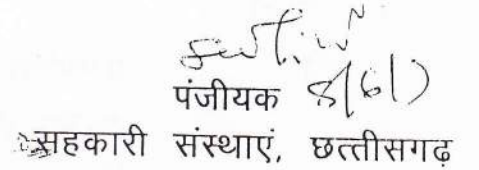 पंजीयक
सहकारी संस्थाएं, छत्तीसगढ़